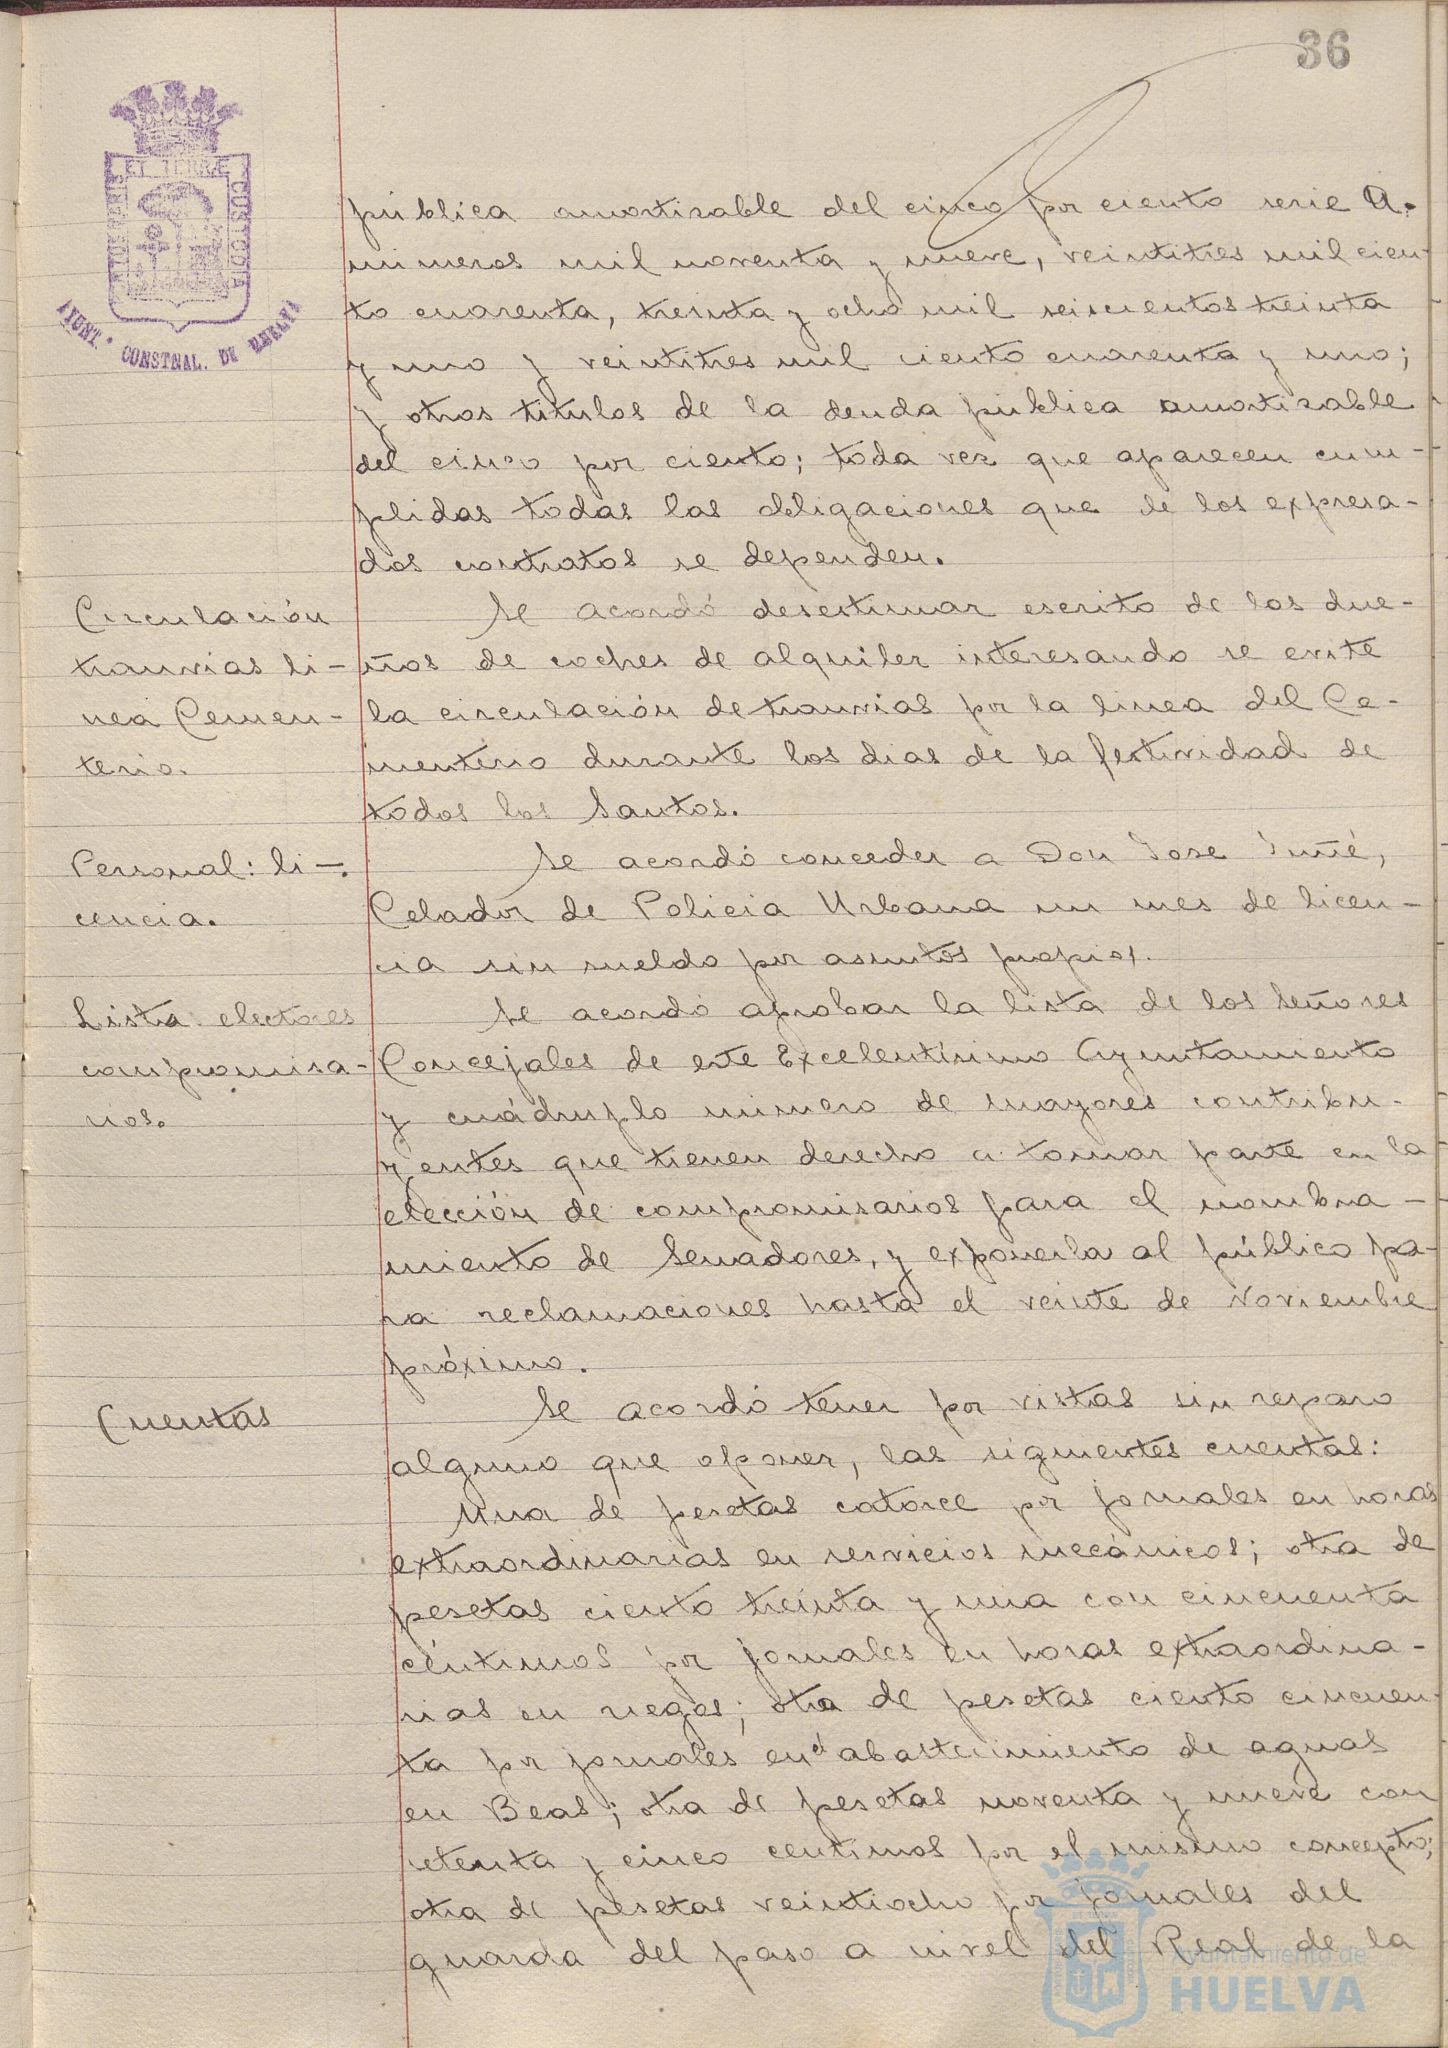 36
PORTUS MARIS ET TERRÆ CUSTODIA
AYUNT. CONSTNAL. DE HUELVA
pública amortizable del cinco por ciento serie A.
números mil noventa y nueve, veintitres mil cien-
to cuarenta, treinta y ocho mil seiscientos treinta
y uno y veintitres mil ciento cuarenta y uno;
y otros titulos de la deuda pública amortizable
del cinco por ciento; toda vez que aparecen cum-
plidas todas las obligaciones que de los expresa-
dos contratos se dependen.
Circulación
tranvias li-
nea Cemen-
terio.
Se acordó desestimar escrito de los due-
ños de coches de alquiler interesando se evite
la circulación de tranvias por la linea del Ce-
menterio durante los dias de la festividad de
todos los Santos.
Personal: li-
cencia.
Se acordó conceder a Don Jose Juñé,
Celador de Policia Urbana un mes de licen-
cia sin sueldo por asuntos propios.
Lista electores
compromisa-
rios.
Se acordó aprobar la lista de los Señores
Concejales de este Excelentísimo Ayuntamiento
y cuádruplo número de mayores contribu-
yentes que tienen derecho a tomar parte en la
elección de compromisarios para el nombra-
miento de Senadores, y exponerla al público pa-
ra reclamaciones hasta el veinte de Noviembre
próximo.
Cuentas
Se acordó tener por vistas sin reparo
alguno que oponer, las siguientes cuentas:
Una de pesetas catorce por jornales en horas
extraordinarias en servicios mecánicos; otra de
pesetas ciento treinta y una con cincuenta
céntimos por jornales en horas extraordina-
rias en riegos; otra de pesetas ciento cincuen-
ta por jornales en el abastecimiento de aguas
en Beas; otra de pesetas noventa y nueve con
setenta y cinco centimos por el mismo concepto;
otra de pesetas veintiocho por jornales del
guarda del paso a nivel del Real de la
Ayuntamiento de
HUELVA